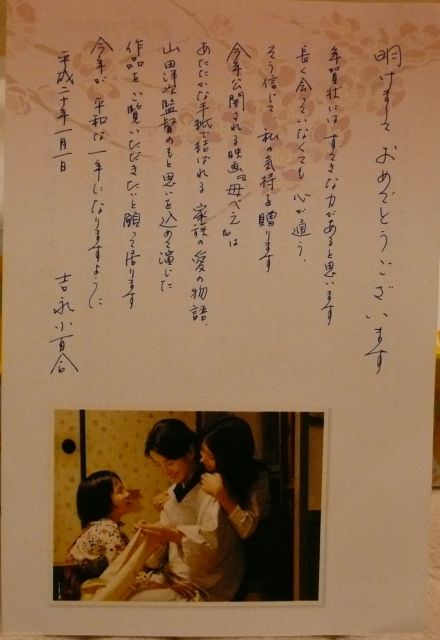 明けまして おめでとうございます
年賀状には すてきな力があると思います
長く会っていなくても 心が通う、
そう信じて 私の気持を贈ります
今年公開される映画『母べえ』は
あたたかな手紙で結ばれる 家族の愛の物語、
山田洋次監督のもと思いを込めて演じた
作品をご覧いただきたいと願って居ります
今年が 平和な一年になりますように
平成二十年一月一日
吉永小百合